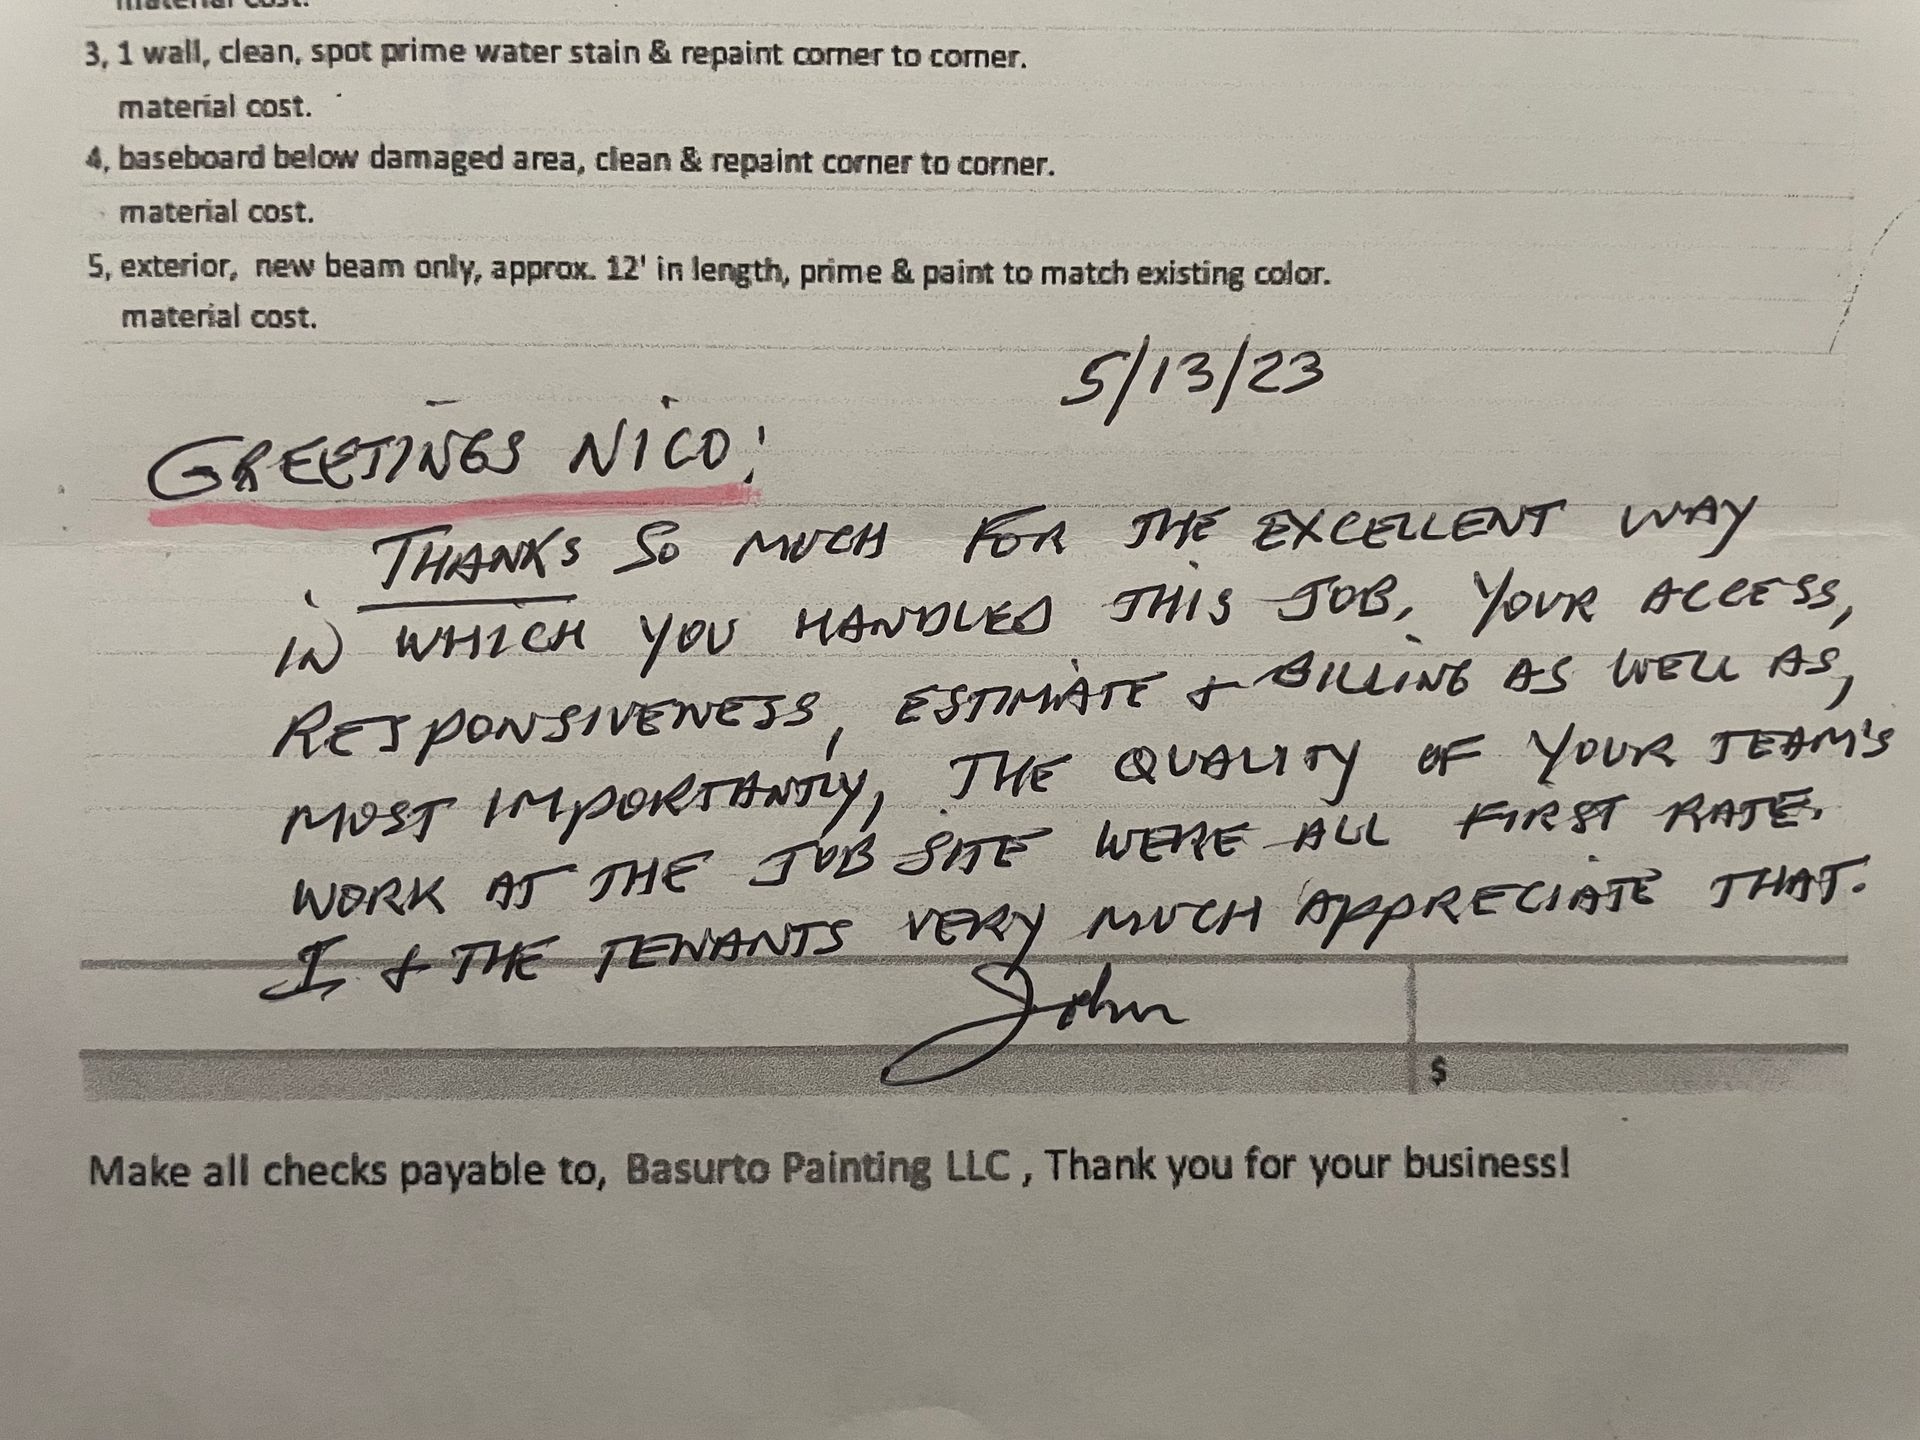 material cost.
3, 1 wall, clean, spot prime water stain & repaint corner to corner.
material cost.
4, baseboard below damaged area, clean & repaint corner to corner.
material cost.
5, exterior, new beam only, approx. 12' in length, prime & paint to match existing color.
material cost.
5/13/23
GREETINGS NICO!
THANKS SO MUCH FOR THE EXCELLENT WAY
IN WHICH YOU HANDLED THIS JOB. YOUR ACCESS,
RESPONSIVENESS, ESTIMATE & BILLING AS WELL AS,
MOST IMPORTANTLY, THE QUALITY OF YOUR TEAM'S
WORK AT THE JOB SITE WERE ALL FIRST RATE.
I & THE TENANTS VERY MUCH APPRECIATE THAT.
John
$
Make all checks payable to, Basurto Painting LLC , Thank you for your business!